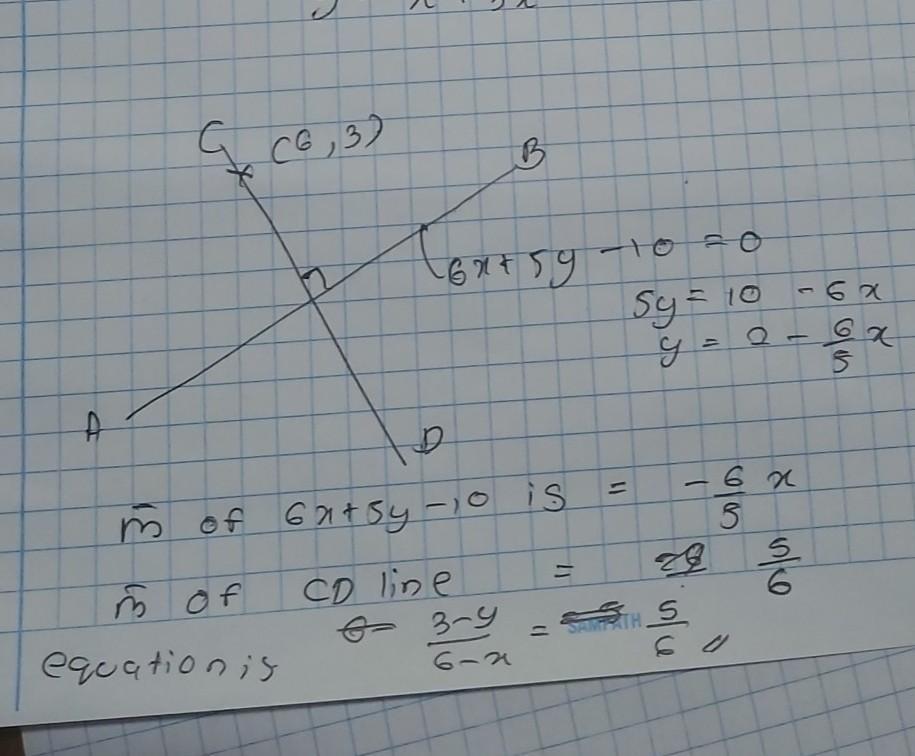 C (6,3)
B
6x+5y-10=0
5y=10-6x
y=2-6/5x
A
D
m̄ of 6x+5y-10 is = -6/5 x
m̄ of CD line = 5/6
equation is 3-y/6-x = 5/6
SAMPATH